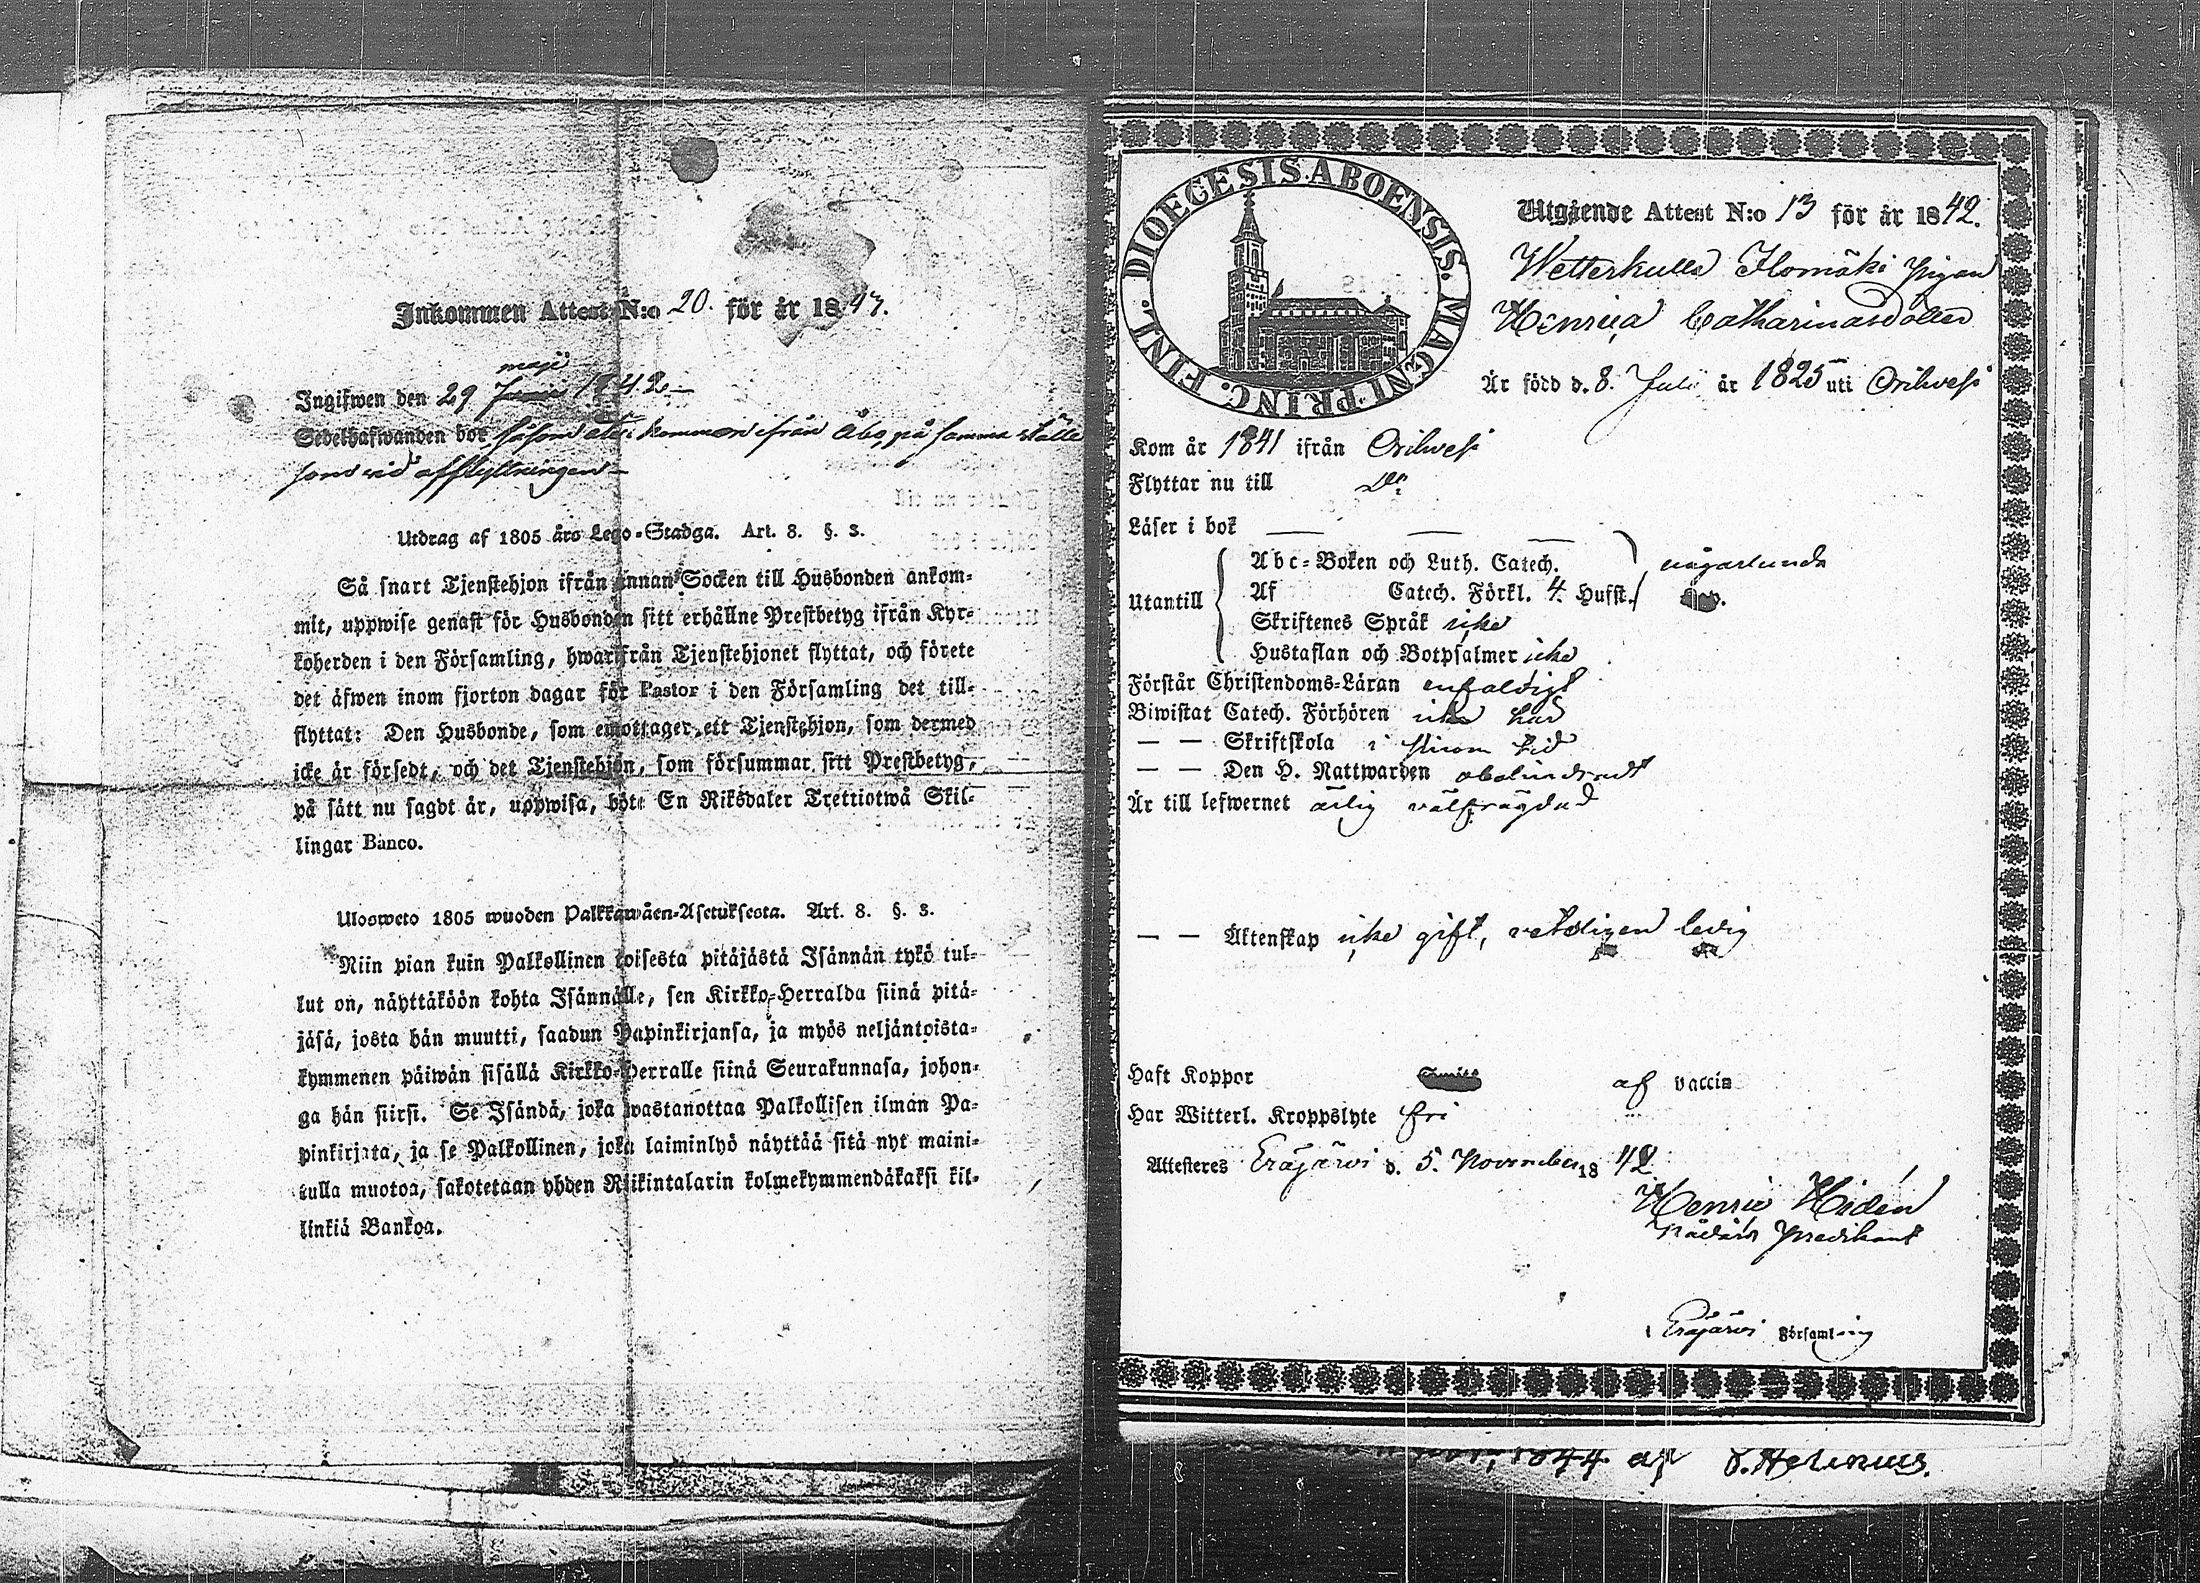 Inkommen Attest N:o 20. för år 1843.
maji
Ingifwen den 29 Junii 1842.
Sedelhafwanden bor såsom åter kommen ifrån Åbo, på samma ställe
som vid afflyttningen
Utdrag af 1805 års Lego-Stadga. Art. 8. §. 3.
Så snart Tjenstehjon ifrån annan Socken till Husbonden ankom-
mit, uppwise genast för Husbonden sitt erhållne Prestbetyg ifrån Kyr-
koherden i den Församling, hwarifrån Tjenstehjonet flyttat, och förete
det äfwen inom fjorton dagar för Pastor i den Församling det till-
flyttat: Den Husbonde, som emottager ett Tjenstehjon, som dermed
icke är försedt, och det Tjenstehjon, som försummar sitt Prestbetyg,
på sätt nu sagdt är, uppwisa, böte En Riksdaler Trettiotwå Skil-
lingar Banco.
Ulosweto 1805 wuoden Palkkawäen-Asetuksesta. Art. 8. §. 3.
Niin pian kuin Palkollinen toisesta pitäjästä Isännän tykö tul-
lut on, näyttäköön kohta Isännälle, sen Kirkko-Herralda siinä pitä-
jäsä, josta hän muutti, saadun Papinkirjansa, ja myös neljäntoista-
kymmenen päiwän sisällä Kirkko-Herralle siinä Seurakunnasa, johon-
ga hän siirsi. Se Isändä, joka wastanottaa Palkollisen ilman Pa-
pinkirjata, ja se Palkollinen, joka laiminlyö näyttää sitä nyt maini-
tulla muotoa, sakotetaan yhden Riikintalarin kolmekymmendäkaksi kil-
linkiä Bankoa.
DIOECESIS ABOENSIS. MAGNI PRINC. FINL.
Utgående Attest N:o 13 för år 1842.
Wetterkulla Ilomäki pigan
Henrica Catharinasdotter
Är född d. 8. Julii år 1825 uti Orihvesi
Kom år 1841 ifrån Orihvesi
Flyttar nu till Do
Läser i bok — — —
Utantill
Abc-Boken och Luth. Catech. någorlunda
Af Catech. Förkl. 4. Hufst.
Skriftenes Språk icke
Hustaflan och Botpsalmer icke
Förstår Christendoms-Läran enfaldigt
Biwistat Catech. Förhören icke här
— — Skriftskola i sinom tid
— — Den H. Nattwarden obehindradt
Är till lefwernet ärlig välfrägdad
— — Äktenskap icke gift, veterligen ledig
Haft Koppor af vaccin
Har Witterl. Kroppslyte fri
Attesteres Eräjärvi d. 5. November 1842
Henric Hidén
Predikant
i Eräjärvi Församling
1844 af Helenius.